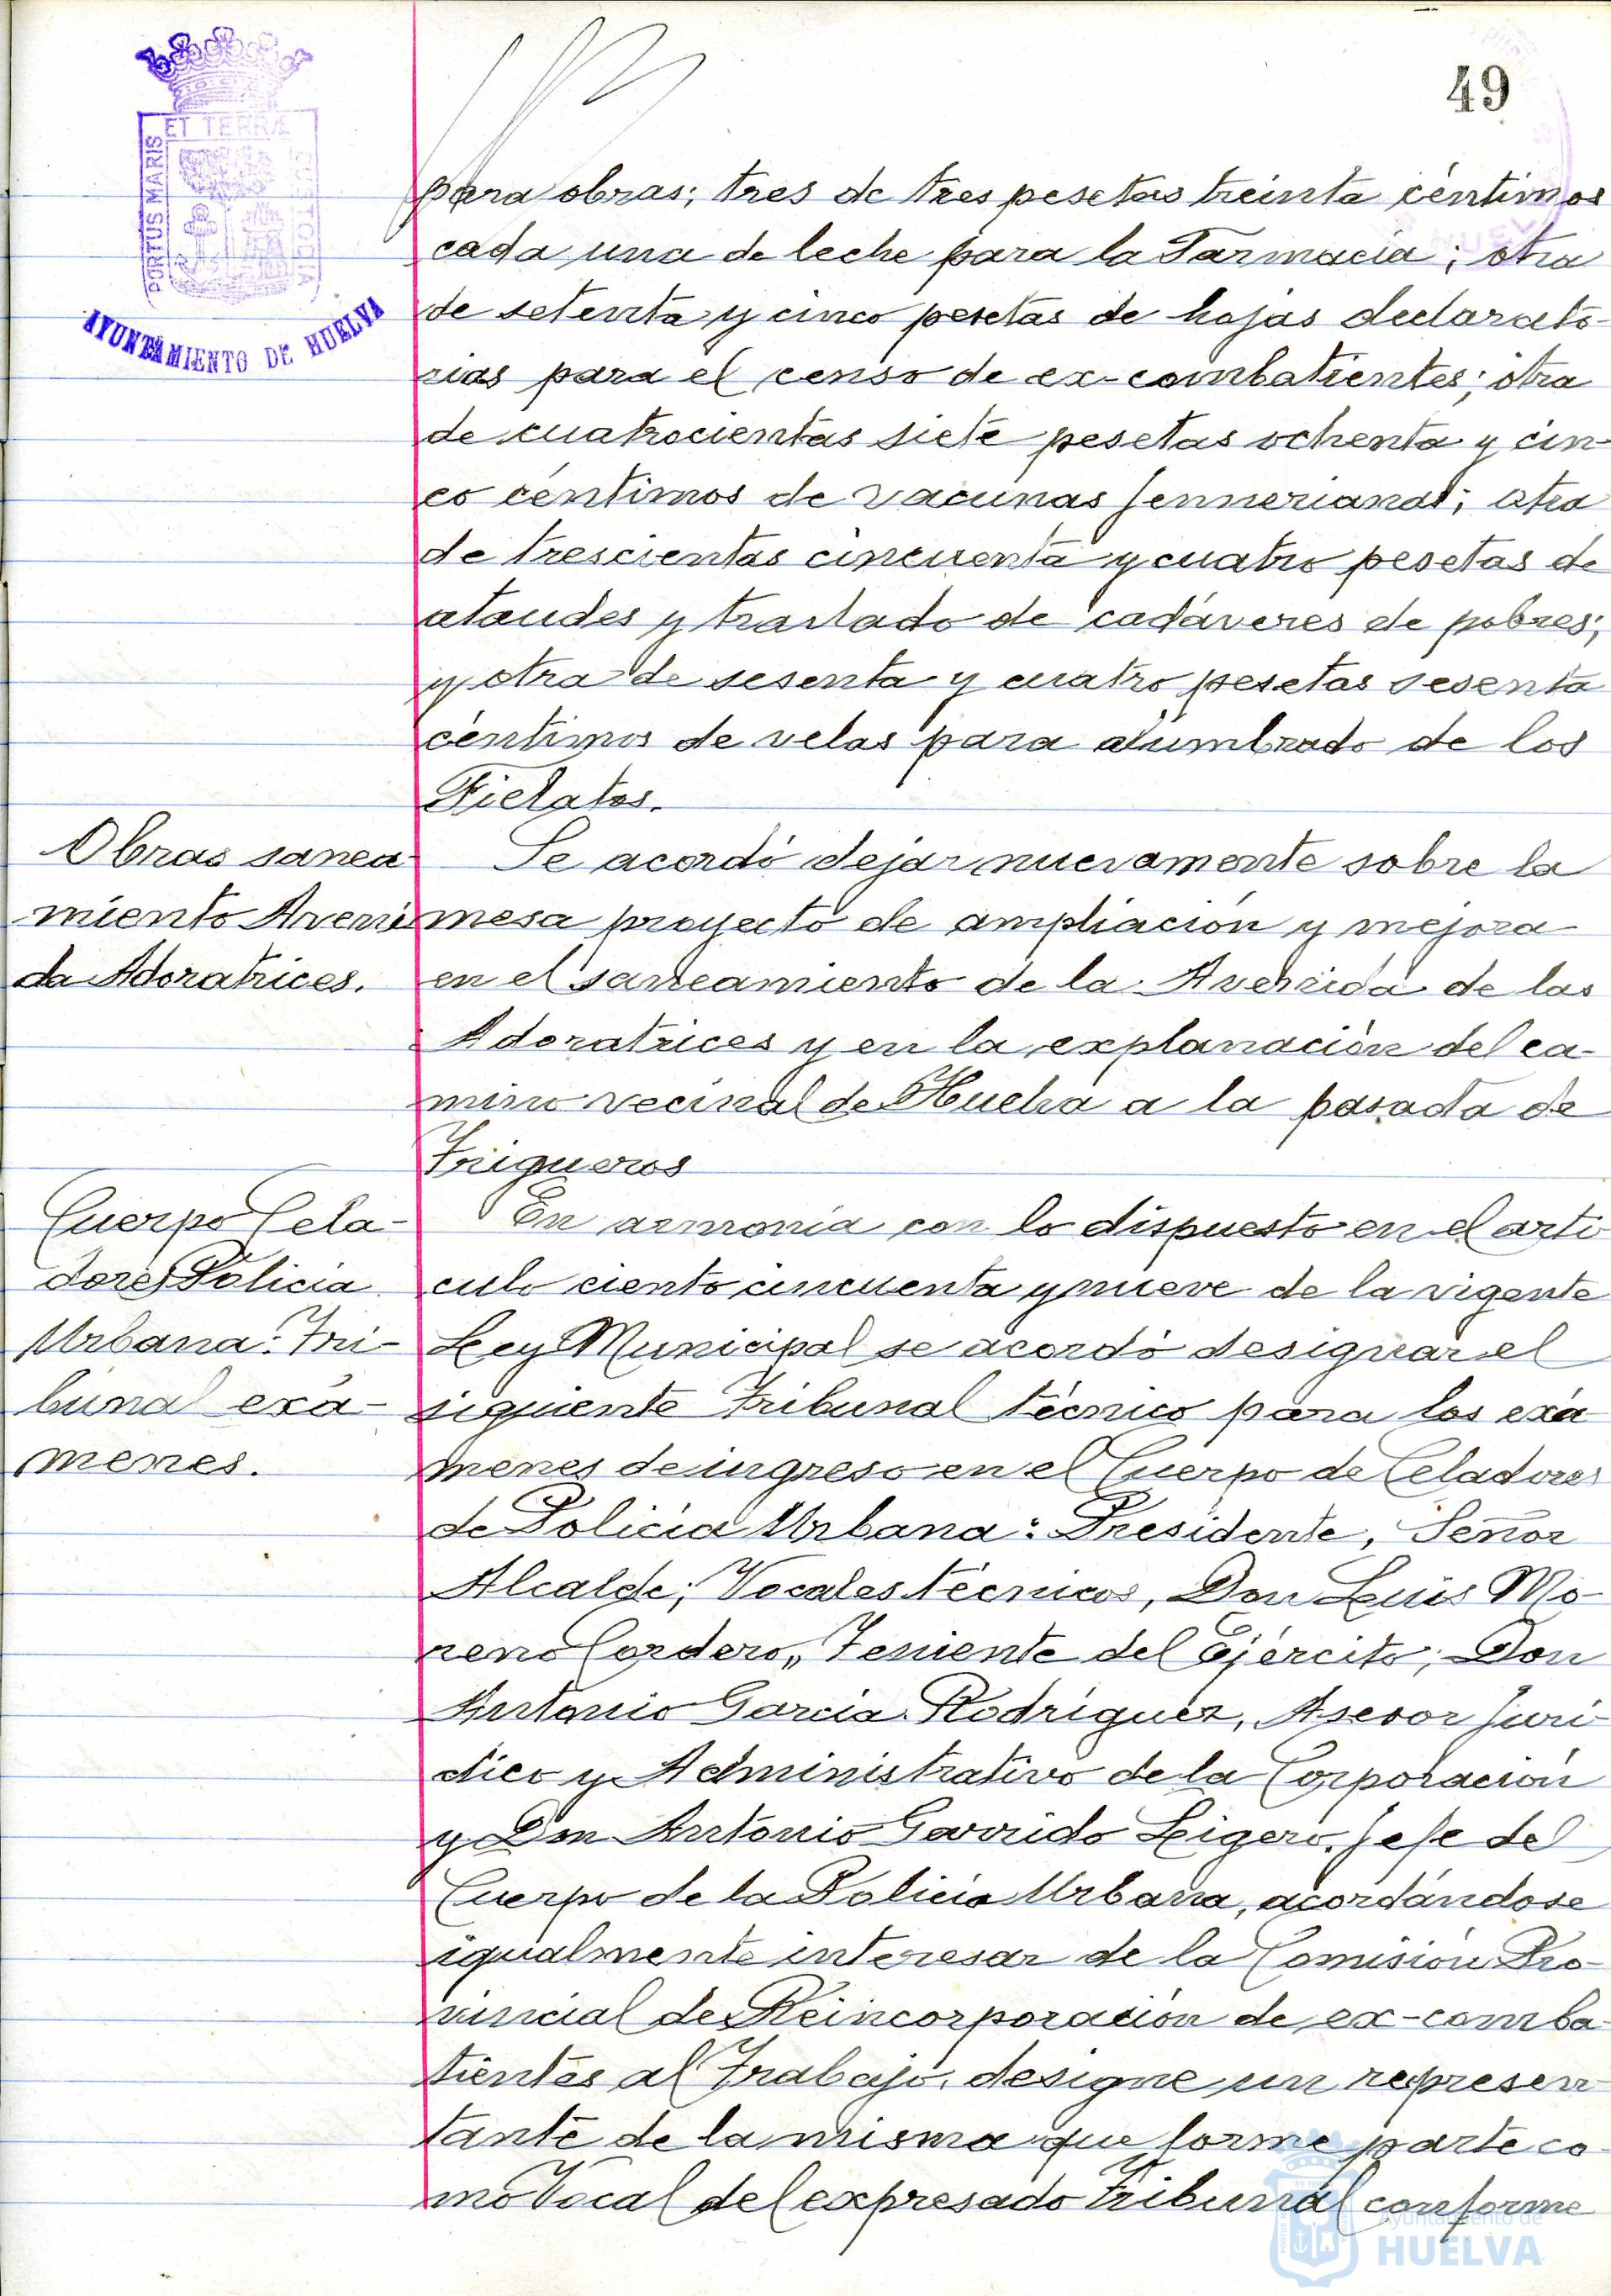 49
ET TERRÆ
PORTUS MARIS
CUSTODIA
AYUNTAMIENTO DE HUELVA
para obras; tres de tres pesetas treinta céntimos
cada una de leche para la Farmacia; otra
de setenta y cinco pesetas de hojas declarato-
rias para el censo de ex-combatientes; otra
de cuatrocientas siete pesetas ochenta y cin-
co céntimos de vacunas Jennerianas; otra
de trescientas cincuenta y cuatro pesetas de
ataudes y traslado de cadáveres de pobres;
y otra de sesenta y cuatro pesetas sesenta
céntimos de velas para alumbrado de los
Fielatos.
Obras sanea-
miento Aveni
da Adoratrices.
Se acordó dejar nuevamente sobre la
mesa proyecto de ampliación y mejora
en el saneamiento de la Avenida de las
Adoratrices y en la explanación del ca-
mino vecinal de Huelva a la pasada de
Trigueros
Cuerpo Cela-
dores Policía
Urbana. Tri-
bunal exá-
menes.
En armonía con lo dispuesto en el artí
culo ciento cincuenta y nueve de la vigente
Ley Municipal se acordó designar el
siguiente Tribunal técnico para los exá
menes de ingreso en el Cuerpo de Celadores
de Policía Urbana: Presidente, Señor
Alcalde; Vocales técnicos, Don Luis Mo-
reno Cordero,, Teniente del Ejército; Don
Antonio García Rodríguez, Asesor Jurí-
dico y Administrativo de la Corporación
y Don Antonio Garrido Ligero, Jefe del
Cuerpo de la Policía Urbana, acordándose
igualmente interesar de la Comisión Pro-
vincial de Reincorporación de ex-comba-
tientes al Trabajo, designe un represen-
tante de la misma que forme parte co-
mo Vocal del expresado Tribunal conforme
Ayuntamiento de
HUELVA